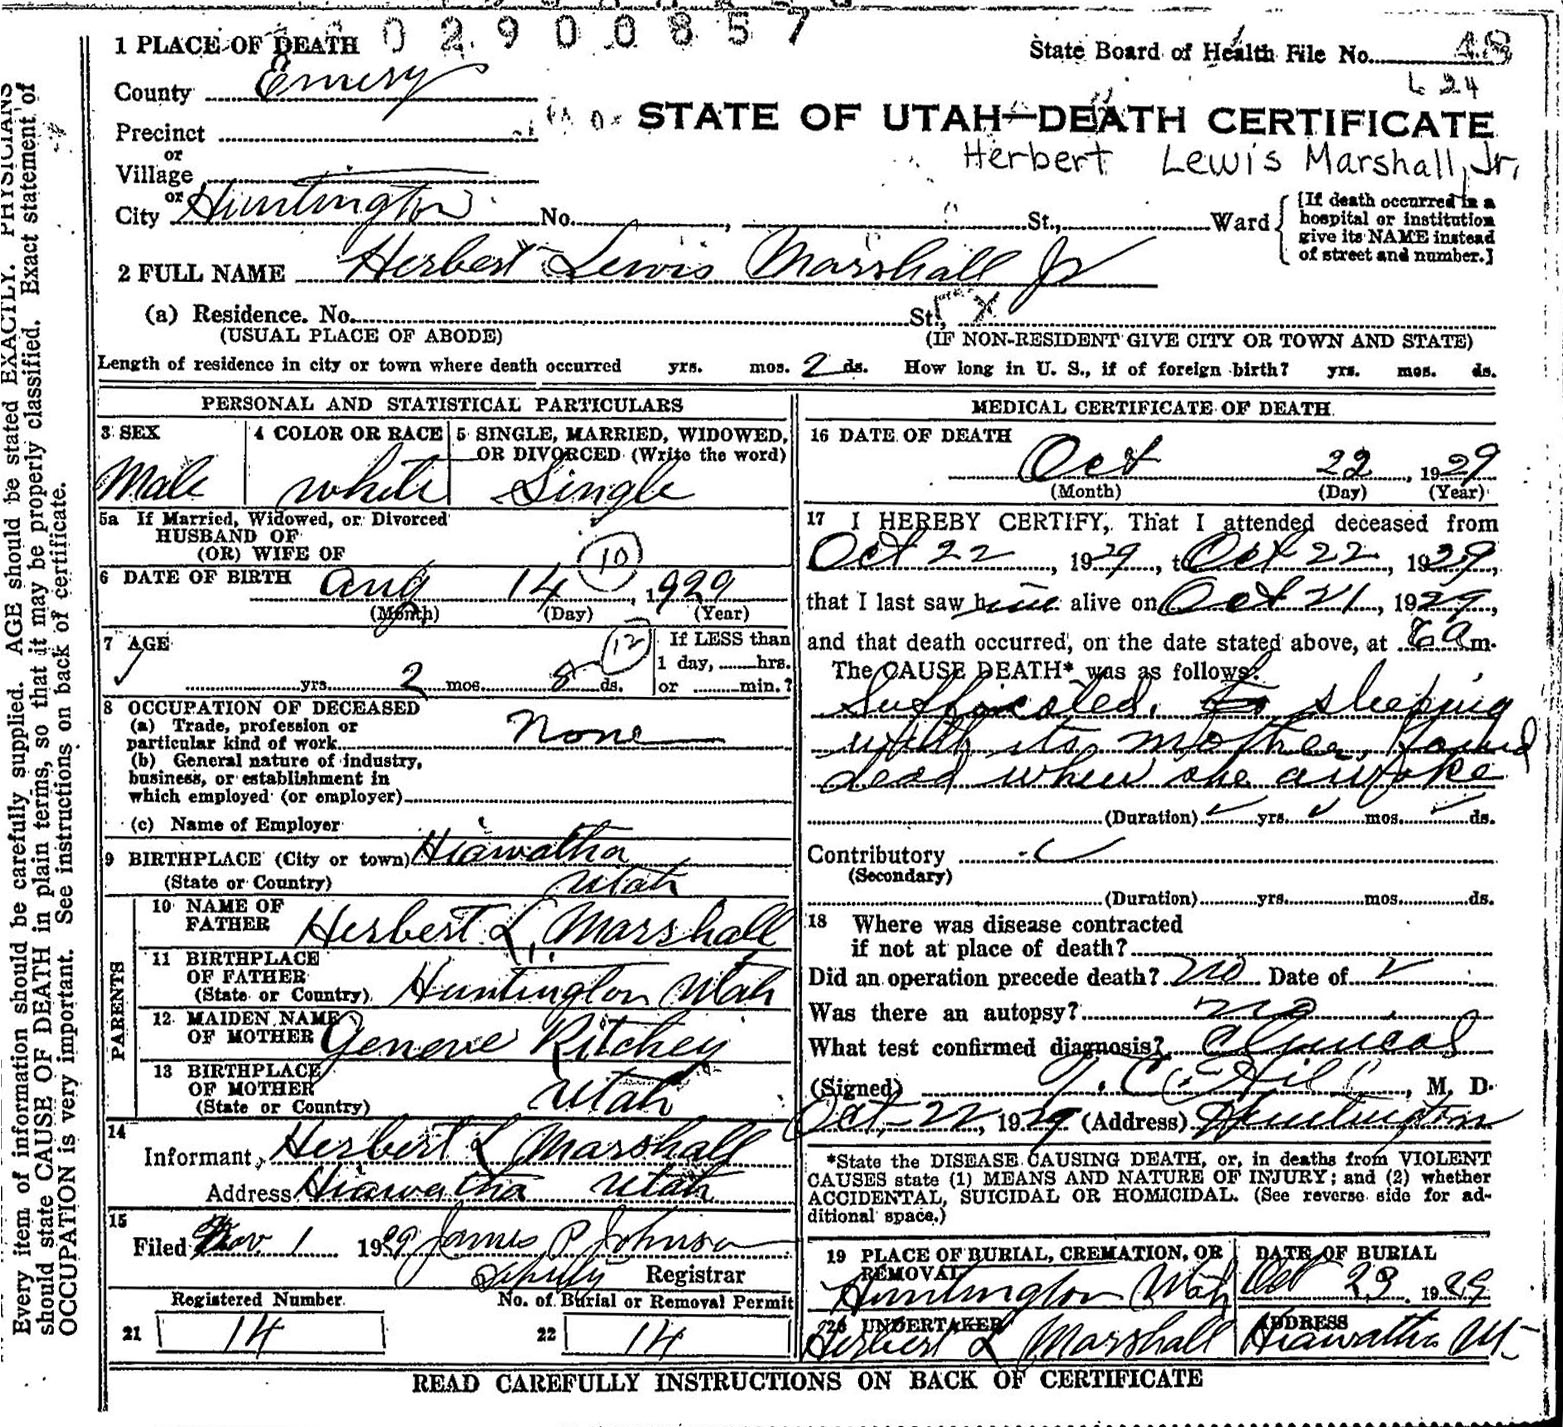 0 2 9 0 0 8 5 7
1 PLACE OF DEATH
State Board of Health File No. 48
County Emery
6 24
Precinct
STATE OF UTAH—DEATH CERTIFICATE
or
Village
Herbert Lewis Marshall, Jr.
or
City Huntington No. , St., Ward
[If death occurred in a
hospital or institution
give its NAME instead
of street and number.]
2 FULL NAME Herbert Lewis Marshall Jr
(a) Residence. No. St.,
(USUAL PLACE OF ABODE) (IF NON-RESIDENT GIVE CITY OR TOWN AND STATE)
Length of residence in city or town where death occurred yrs. mos. 2 ds. How long in U. S., if of foreign birth? yrs. mos. ds.
PERSONAL AND STATISTICAL PARTICULARS
3 SEX
Male
4 COLOR OR RACE
white
5 SINGLE, MARRIED, WIDOWED,
OR DIVORCED (Write the word)
Single
5a If Married, Widowed, or Divorced
HUSBAND OF
(OR) WIFE OF
10
6 DATE OF BIRTH Aug 14, 1929
(Month) (Day) (Year)
7 AGE
12
yrs. 2 mos. 8 ds.
If LESS than
1 day, hrs.
or min.?
8 OCCUPATION OF DECEASED
(a) Trade, profession or
particular kind of work None
(b) General nature of industry,
business, or establishment in
which employed (or employer)
(c) Name of Employer
9 BIRTHPLACE (City or town) Hiawatha
(State or Country) Utah
PARENTS
10 NAME OF
FATHER Herbert L. Marshall
11 BIRTHPLACE
OF FATHER
(State or Country) Huntington Utah
12 MAIDEN NAME
OF MOTHER Geneve Ritchey
13 BIRTHPLACE
OF MOTHER
(State or Country) Utah
14
Informant Herbert L Marshall
Address Hiawatha Utah
15
Filed Nov. 1 1929 James P Johnson
Deputy Registrar
Registered Number
21 14
No. of Burial or Removal Permit
22 14
MEDICAL CERTIFICATE OF DEATH
16 DATE OF DEATH
Oct 22, 1929
(Month) (Day) (Year)
17 I HEREBY CERTIFY, That I attended deceased from
Oct 22, 1929, to Oct 22, 1929,
that I last saw him alive on Oct 21, 1929,
and that death occurred, on the date stated above, at 6 a m.
The CAUSE DEATH* was as follows:
Sufficated. to sleeping
with its mother. Found
dead when she awoke
(Duration) yrs. mos. ds.
Contributory
(Secondary)
(Duration) yrs. mos. ds.
18 Where was disease contracted
if not at place of death?
Did an operation precede death? no Date of
Was there an autopsy? no
What test confirmed diagnosis? Clinical
(Signed) T. C. Hill, M. D.
Oct. 22, 1929 (Address) Huntington
*State the DISEASE CAUSING DEATH, or, in deaths from VIOLENT
CAUSES state (1) MEANS AND NATURE OF INJURY; and (2) whether
ACCIDENTAL, SUICIDAL OR HOMICIDAL. (See reverse side for ad-
ditional space.)
19 PLACE OF BURIAL, CREMATION, OR
REMOVAL
Huntington Utah
DATE OF BURIAL
Oct 23, 1929
20 UNDERTAKER
Herbert L Marshall
ADDRESS
Hiawatha Ut
READ CAREFULLY INSTRUCTIONS ON BACK OF CERTIFICATE
Every item of information should be carefully supplied. AGE should be stated EXACTLY. PHYSICIANS
should state CAUSE OF DEATH in plain terms, so that it may be properly classified. Exact statement of
OCCUPATION is very important. See instructions on back of certificate.